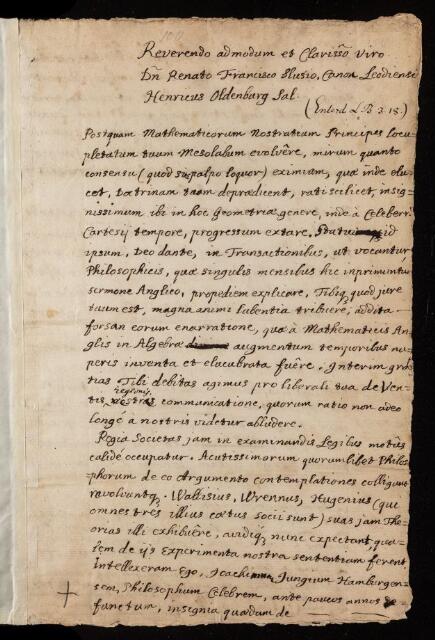 Reverendo admodum et Clarisso Viro
Dn Renato Francisco Slusio, Canon. Leodiensi
Henricus Oldenburg Sal.
(Enterd L. B. 3. 15.)
Postquam Mathematicorum Nostratium Principes locu-
pletatum tuum Mesolabum evolvêre, mirum quanto
consensu (quod sis palpo loquor) eximiam, quæ inde elu-
cet, doctrinam tuam deprædicent, rati scilicet, insig-
nissimum ibi in hoc Geometriæ genere, inde à Celeberri
Cartesij tempore, progressum extare. Statui id
ipsum, Deo dante, in Transactionibus, ut vocantur,
Philosophicis, quæ singulis mensibus hic imprimuntur
sermone Anglico, propediem explicare, Tibiq quod jure
tuum est, magna animi lubentia tribuere; addita
forsan eorum enarratione, quæ à Mathematicis An-
glis in Algebræ augmentum temporibus nu-
peris inventa et elucubrata fuêre. Interim gra-
tias Tibi debitas agimus pro liberali tua de Ven-
tis regionis vestræ communicatione, quorum ratio non adeo
longè à nostris videtur abludere.
Regia Societas jam in examinandis Legibus motûs
calidè occupatur. Acutissimorum quorumlibet Philoso-
phorum de eo Argumento contemplationes colligunt
revolvuntq. Wallisius, Wrennus, Hugenius (qui
omnes tres illius cœtus socii sunt) suas jam The-
orias illi exhibuêre, avidiq nunc expectant, qua-
lem de ijs Experimenta nostra sententiam ferent.
Intellexeram Ego, Joachimum Jungium Hamburgen-
sem, Philosophum Celebrem, ante paucos annos de-
functum, insignia quædam de